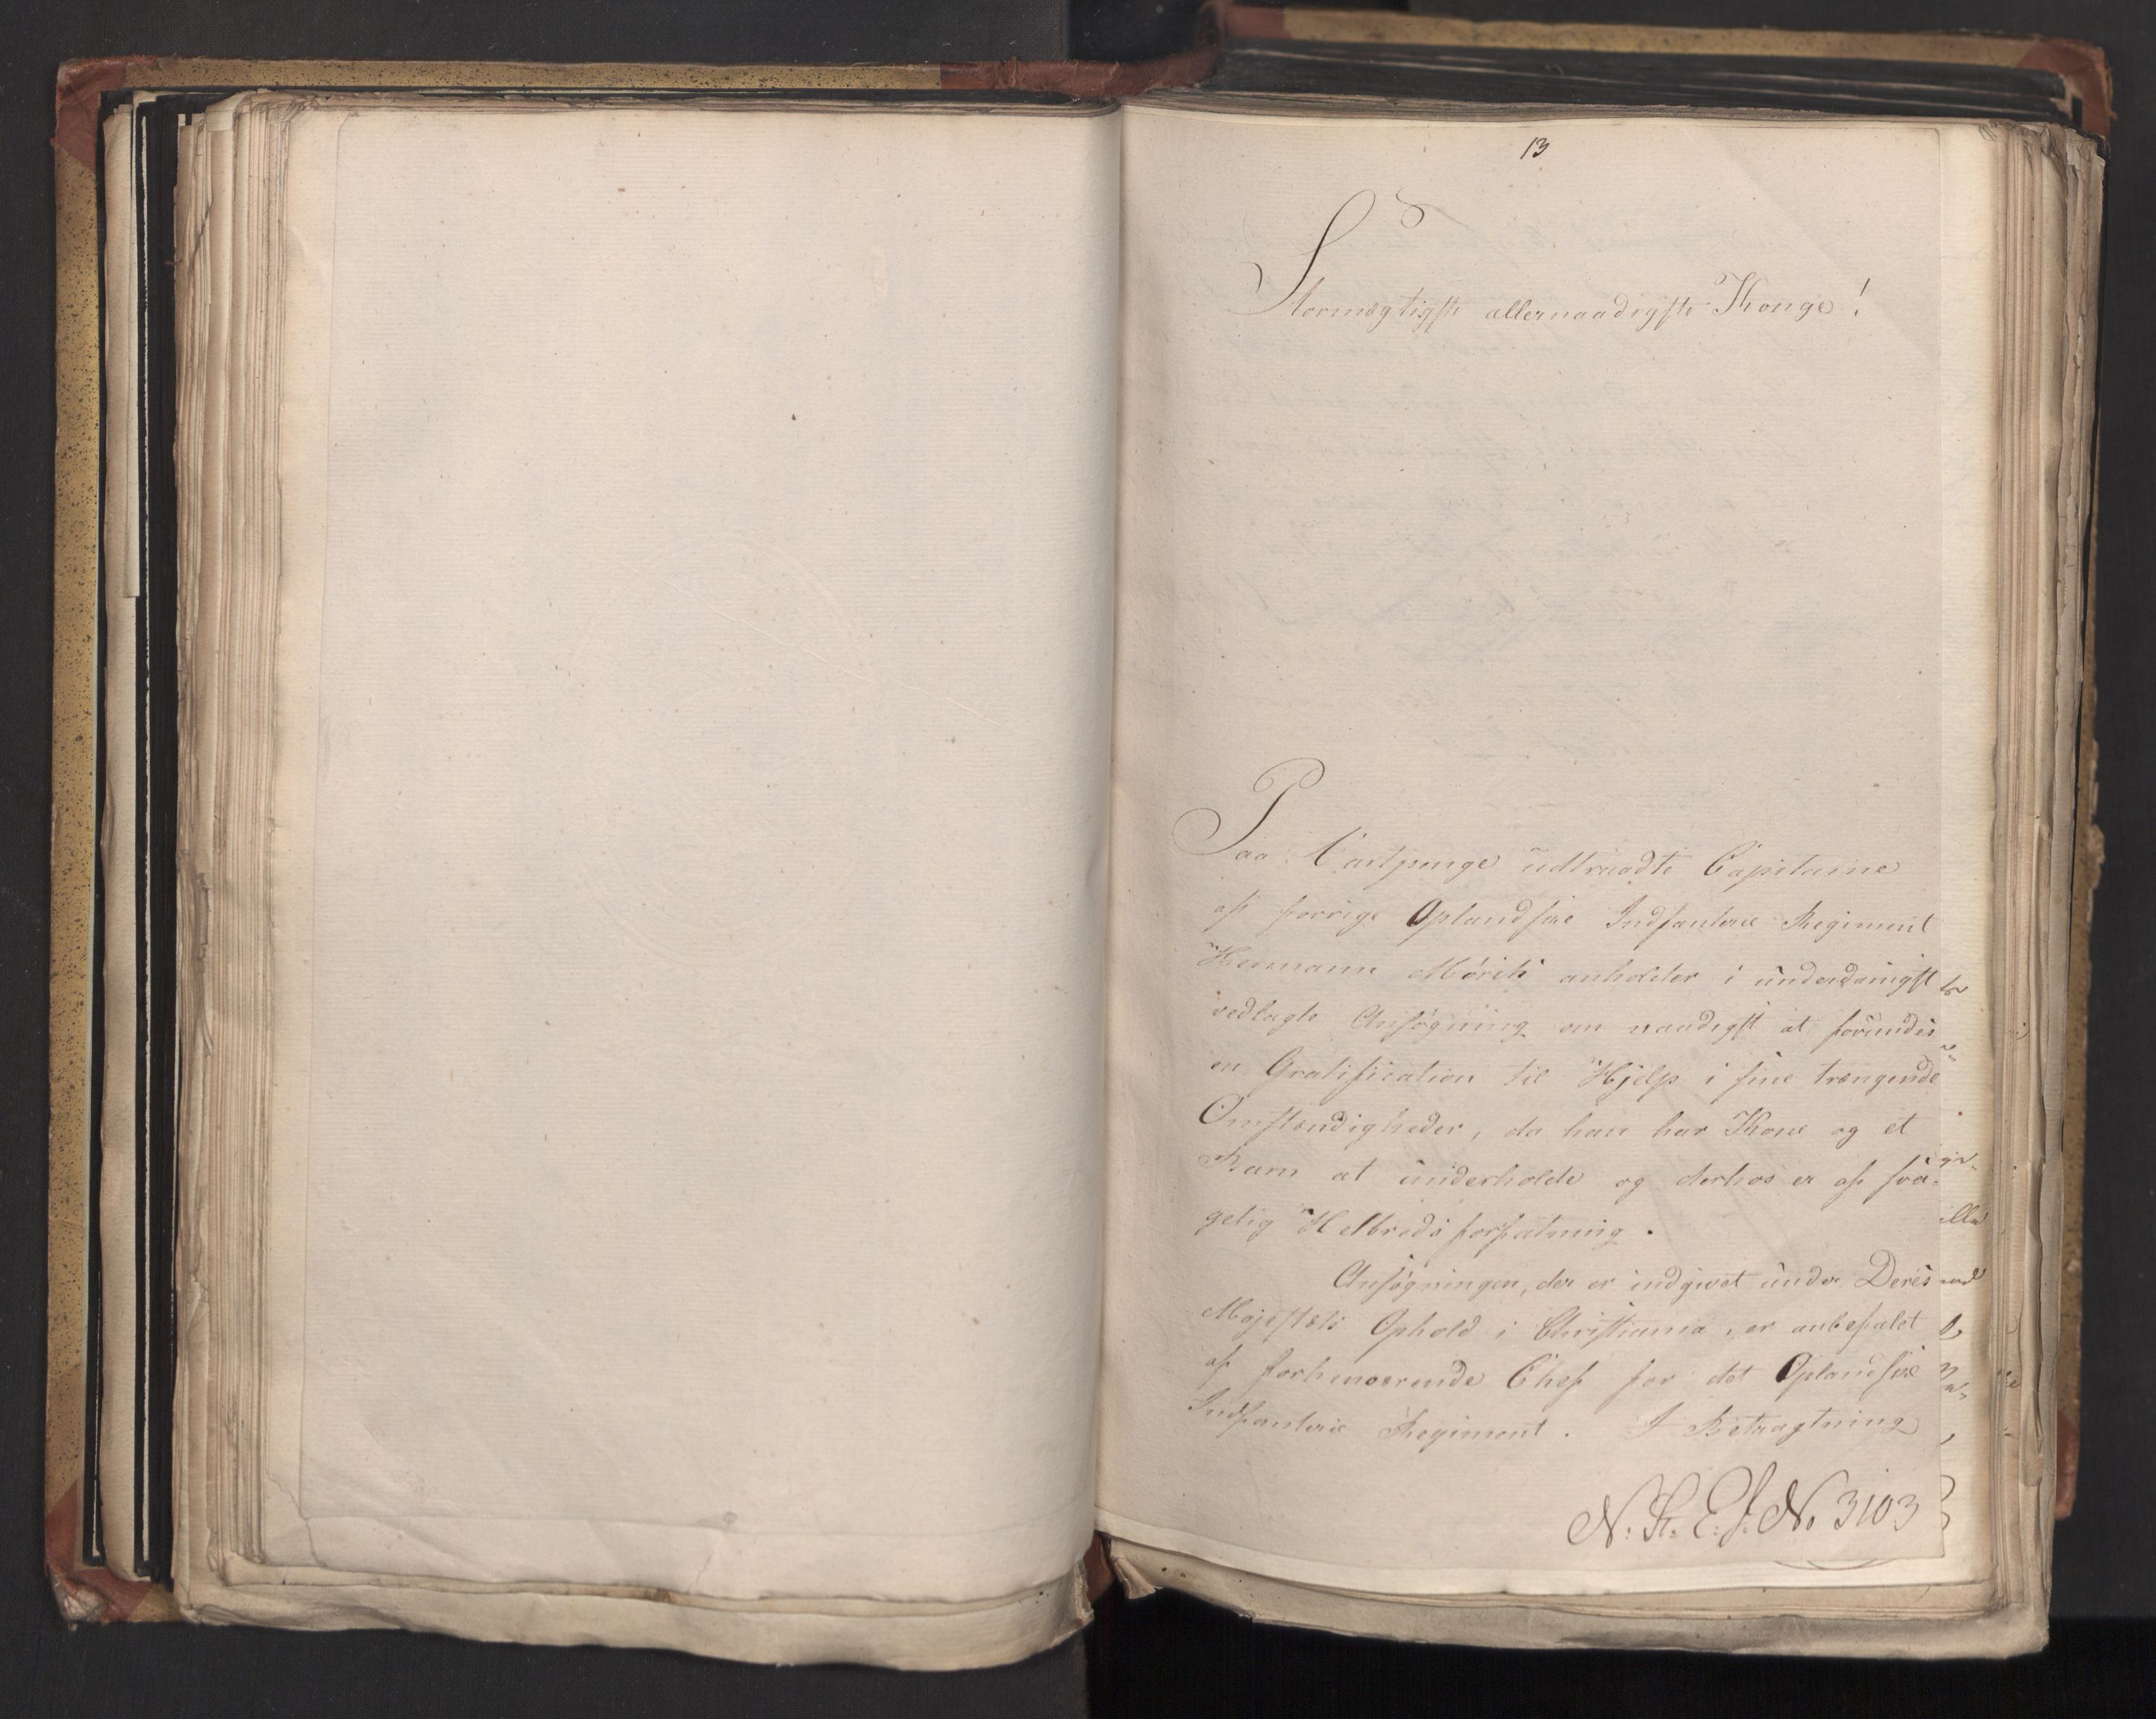 13
Stormægtigste allernaadigste Konge!
Paa Vartpenge udtraadte Capitaine
af forrige Oplandske Indfanterie Regiment
Hermann Møritz anholder i underdanigst
vedlagte Ansøgning om naadigst at forundes
en Gratification til Hjelp i sine trængende
Omstændigheder, da han har Kone og et
Barn at underholde og derhos er af sva-
gelig Helbredsforfatning.
Ansøgningen, der er indgivet under Deres
Majestæts Ophold i Christiania, er anbefalet
af forhenværende Chef for det Oplandske
Indfanterie Regiment. I Betragtning
N: R: E: J: No 3103